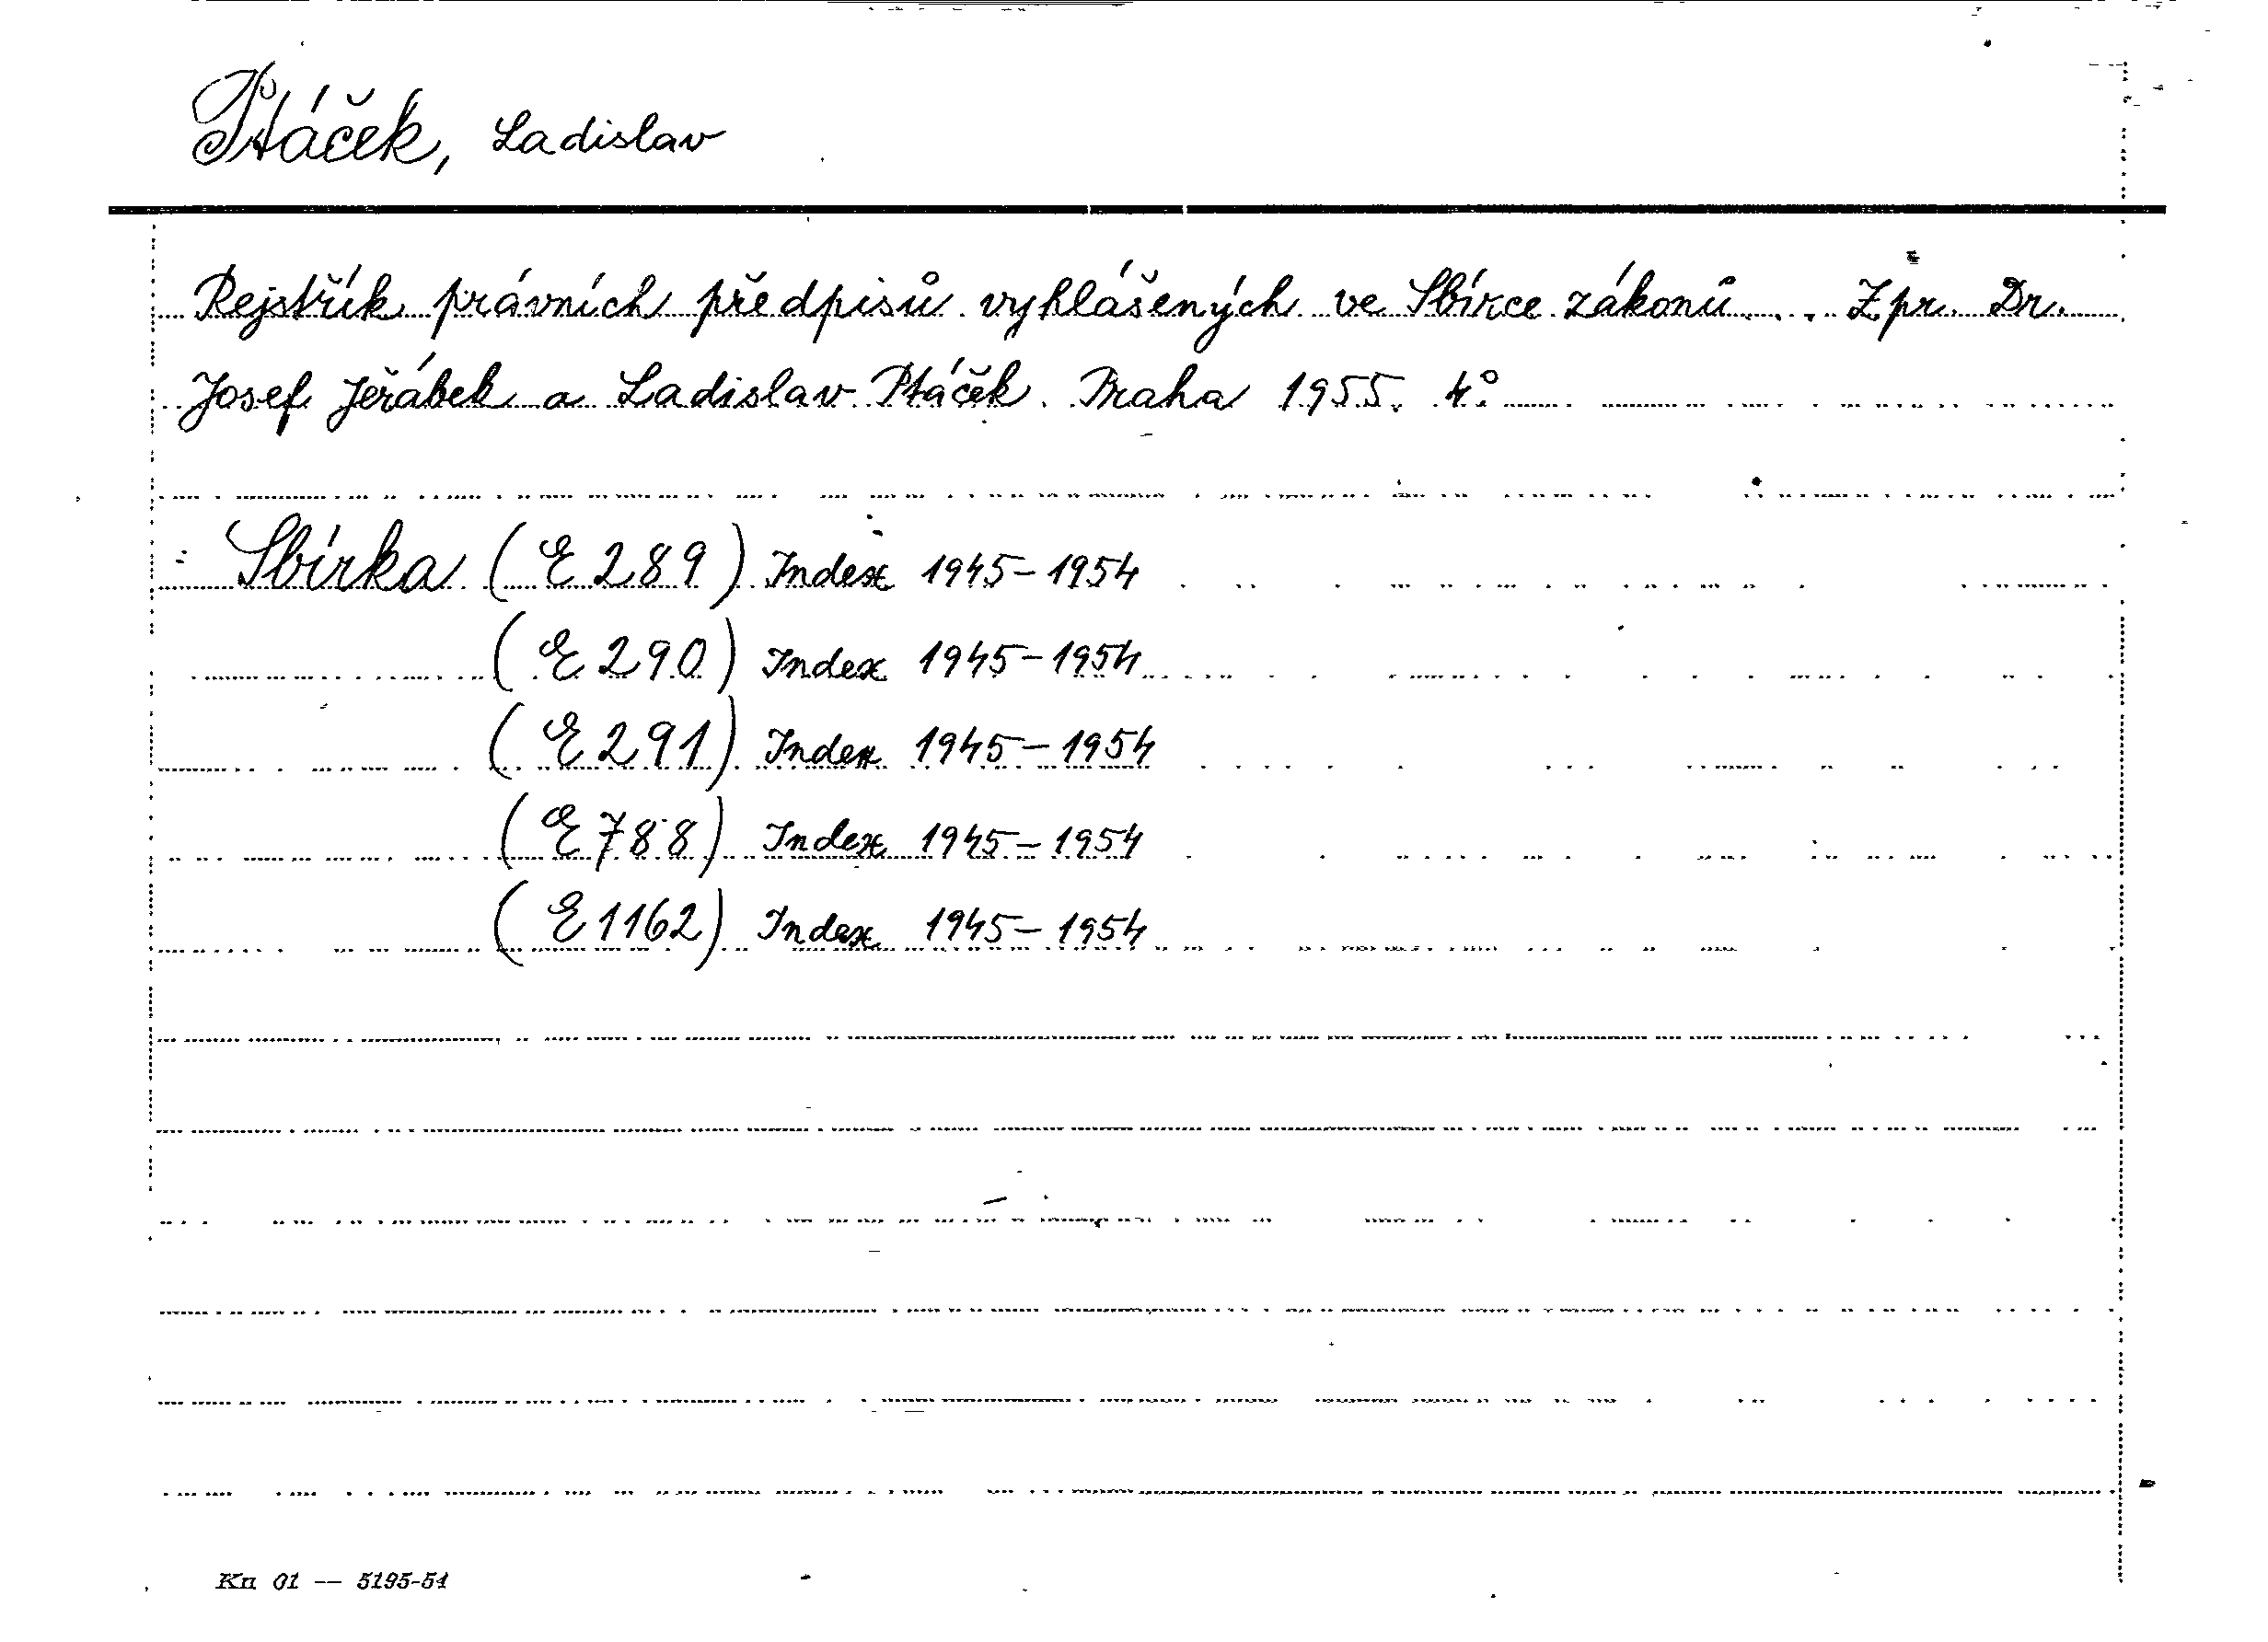 Ptáček, Ladislav
Rejstřík právních předpisů vyhlášených ve Sbírce zákonů... Zpr. Dr.
Josef Jeřábek a Ladislav Ptáček. Praha 1955. 4°
Sbírka (E 289) Index 1945-1954
(E 290) Index 1945-1954
(E 291) Index 1945-1954
(E 788) Index 1945-1954
(E 1162) Index 1945-1954
Kn 01 — 5195-54